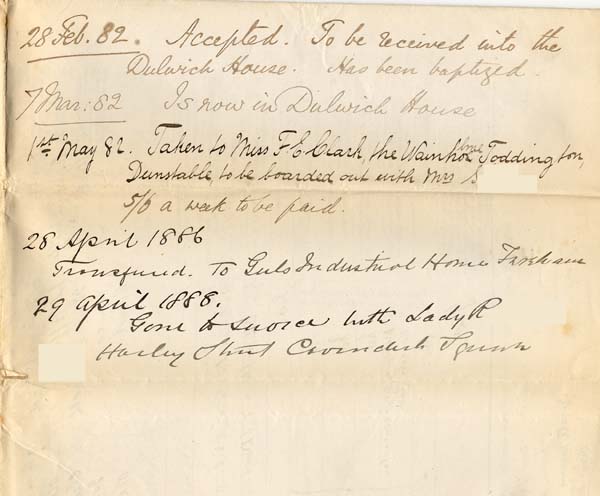 28 Feb. 82. Accepted. To be received into the
Dulwich House. Has been baptized.
7 Mar: 82 Is now in Dulwich House
1st May 82. Taken to Miss F. E. Clark, the Wainholme Toddington,
Dunstable, to be boarded out with Mrs S
5/6 a week to be paid.
28 April 1886
Transferred. To Girls Industrial Home Fareham
29 April 1888.
Gone to Service with Lady R
Harley Street Cavendish Square